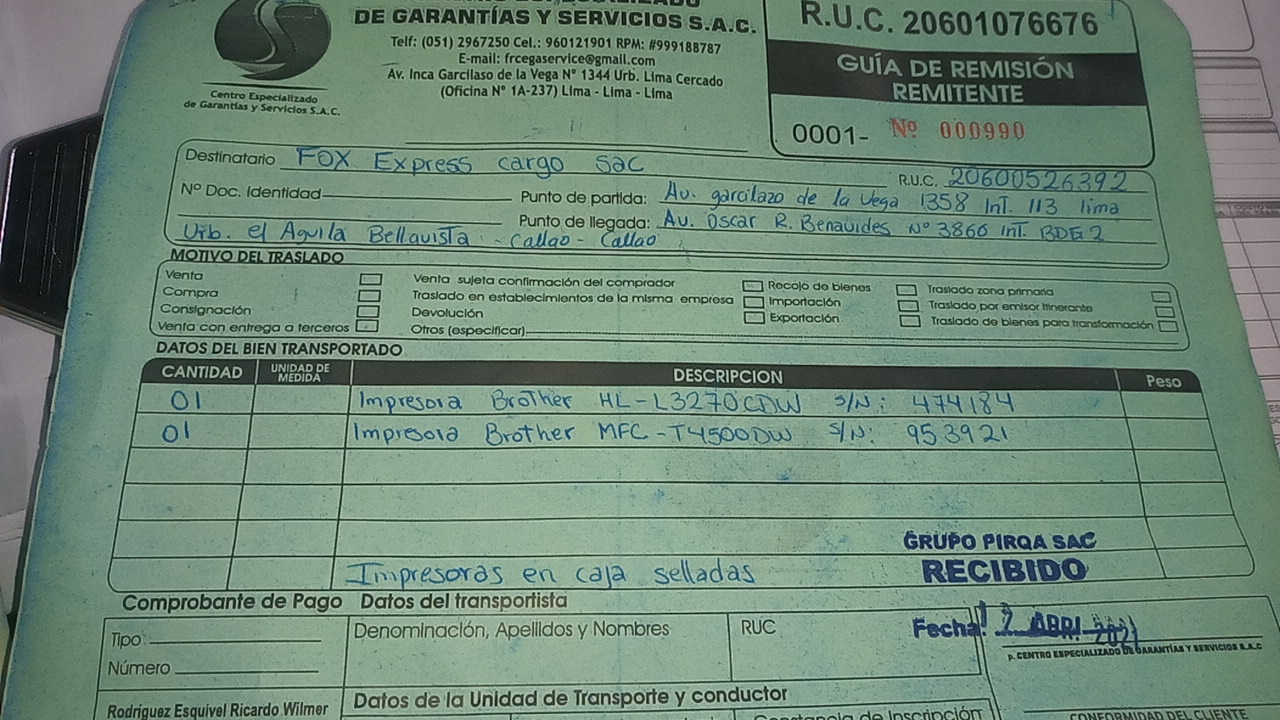 DE GARANTÍAS Y SERVICIOS S.A.C.
Telf: (051) 2967250 Cel.: 960121901 RPM: #999188787
E-mail: frcegaservice@gmail.com
Av. Inca Garcilaso de la Vega Nº 1344 Urb. Lima Cercado
(Oficina Nº 1A-237) Lima - Lima - Lima
Centro Especializado
de Garantías y Servicios S.A.C.
R.U.C. 20601076676
GUÍA DE REMISIÓN
REMITENTE
0001- Nº 000990
Destinatario FOX Express cargo sac
R.U.C. 20600526392
Nº Doc. Identidad
Punto de partida: Av. garcilazo de la Vega 1358 Int. 113 lima
Punto de llegada: Av. Oscar R. Benavides Nº 3866 Int. BDE2
Urb. el Aguila Bellavista - Callao - Callao
MOTIVO DEL TRASLADO
Venta
Compra
Consignación
Venta con entrega a terceros
Venta sujeta confirmación del comprador
Traslado en establecimientos de la misma empresa
Devolución
Otros (especificar)
Recojo de bienes
Importación
Exportación
Traslado zona primaria
Traslado por emisor itinerante
Traslado de bienes para transformación
DATOS DEL BIEN TRANSPORTADO
CANTIDAD UNIDAD DE MEDIDA DESCRIPCION Peso
01 Impresora Brother HL-L3270CDW S/N: 474184
01 Impresora Brother MFC-T4500DW S/N: 953921
Impresoras en caja selladas
GRUPO PIRQA SAC
RECIBIDO
Fecha: 12 ABRI 2021
p. CENTRO ESPECIALIZADO DE GARANTÍAS Y SERVICIOS S.A.C
Comprobante de Pago
Tipo
Número
Datos del transportista
Denominación, Apellidos y Nombres
RUC
Datos de la Unidad de Transporte y conductor
Rodríguez Esquivel Ricardo Wilmer
Constancia de Inscripción
CONFORMIDAD DEL CLIENTE